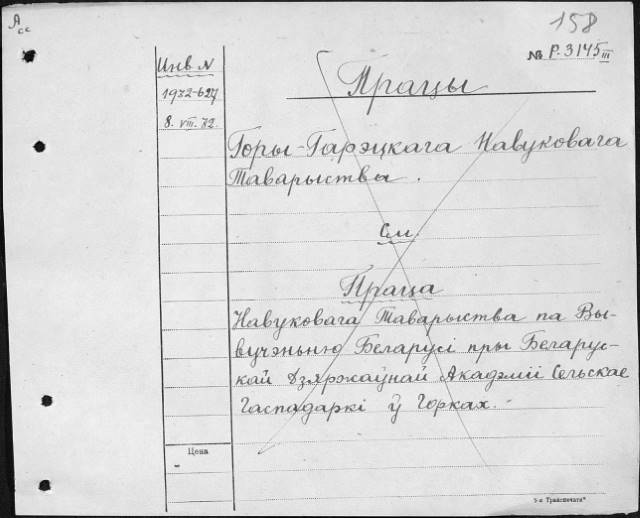 Асс
158
№ Р.3145 III
Инв N
1972-627
8. VIII. 72.
Працы
Горы-Гарэцкага Навуковага
Таварыства.
См.
Праца
Навуковага Таварыства па Вы-
вучэньню Беларусі пры Беларус-
кай Дзяржаўнай Акадэміі Сельскае
Гаспадаркі ў Горках.-
Цена
-
5-я Транспечати"